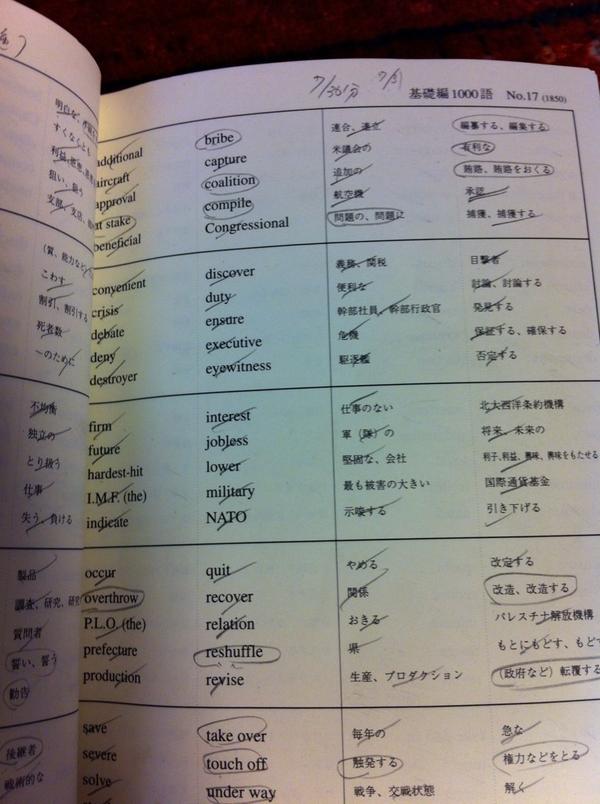 明白な、
すくなくとも
利益、
狙い、狙う
支部、支店、
（質、能力など
こわす
割引、割引する
死者数
〜のために
不均衡
独立の
とり扱う
仕事
失う、負ける
製品
調査、研究、研究
質問者
誓い、誓う
勧告
後継者
戦術的な
7/30 1分 7/31
基礎編1000語 No.17 (1850)
additional bribe 連合、連立 編纂する、編集する
aircraft capture 米議会の 有利な
approval coalition 追加の 賄賂、賄賂をおくる
at stake compile 航空機 承認
beneficial Congressional 問題の、問題に 捕獲、捕獲する
convenient discover 義務、関税 目撃者
crisis duty 便利な 討論、討論する
debate ensure 幹部社員、幹部行政官 発見する
deny executive 危機 保証する、確保する
destroyer eyewitness 駆逐艦 否定する
firm interest 仕事のない 北大西洋条約機構
future jobless 軍（隊）の 将来、未来の
hardest-hit lower 堅固な、会社 利子、利益、興味、興味をもたせる
I.M.F. (the) military 最も被害の大きい 国際通貨基金
indicate NATO 示唆する 引き下げる
occur quit やめる 改定する
overthrow recover 関係 改造、改造する
P.L.O. (the) relation おきる パレスチナ解放機構
prefecture reshuffle 県 もとにもどす、もど
production revise 生産、プロダクション （政府など）転覆する
save take over 毎年の 急な
severe touch off 触発する 権力などをとる
solve under way 戦争、交戦状態 解く